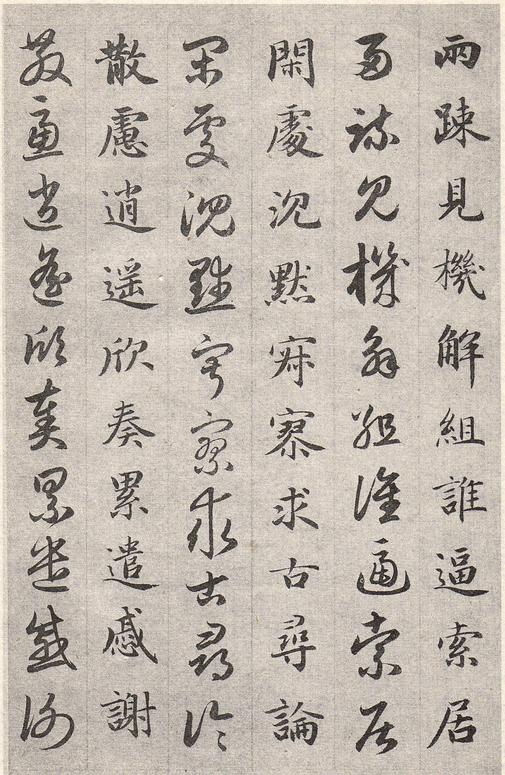 兩踈見機解組誰逼索居
兩踈見機解組誰逼索居
閑處沉默寂寥求古尋論
閑處沉默寂寥求古尋論
散慮逍遥欣奏累遣慼謝
散慮逍遥欣奏累遣慼謝